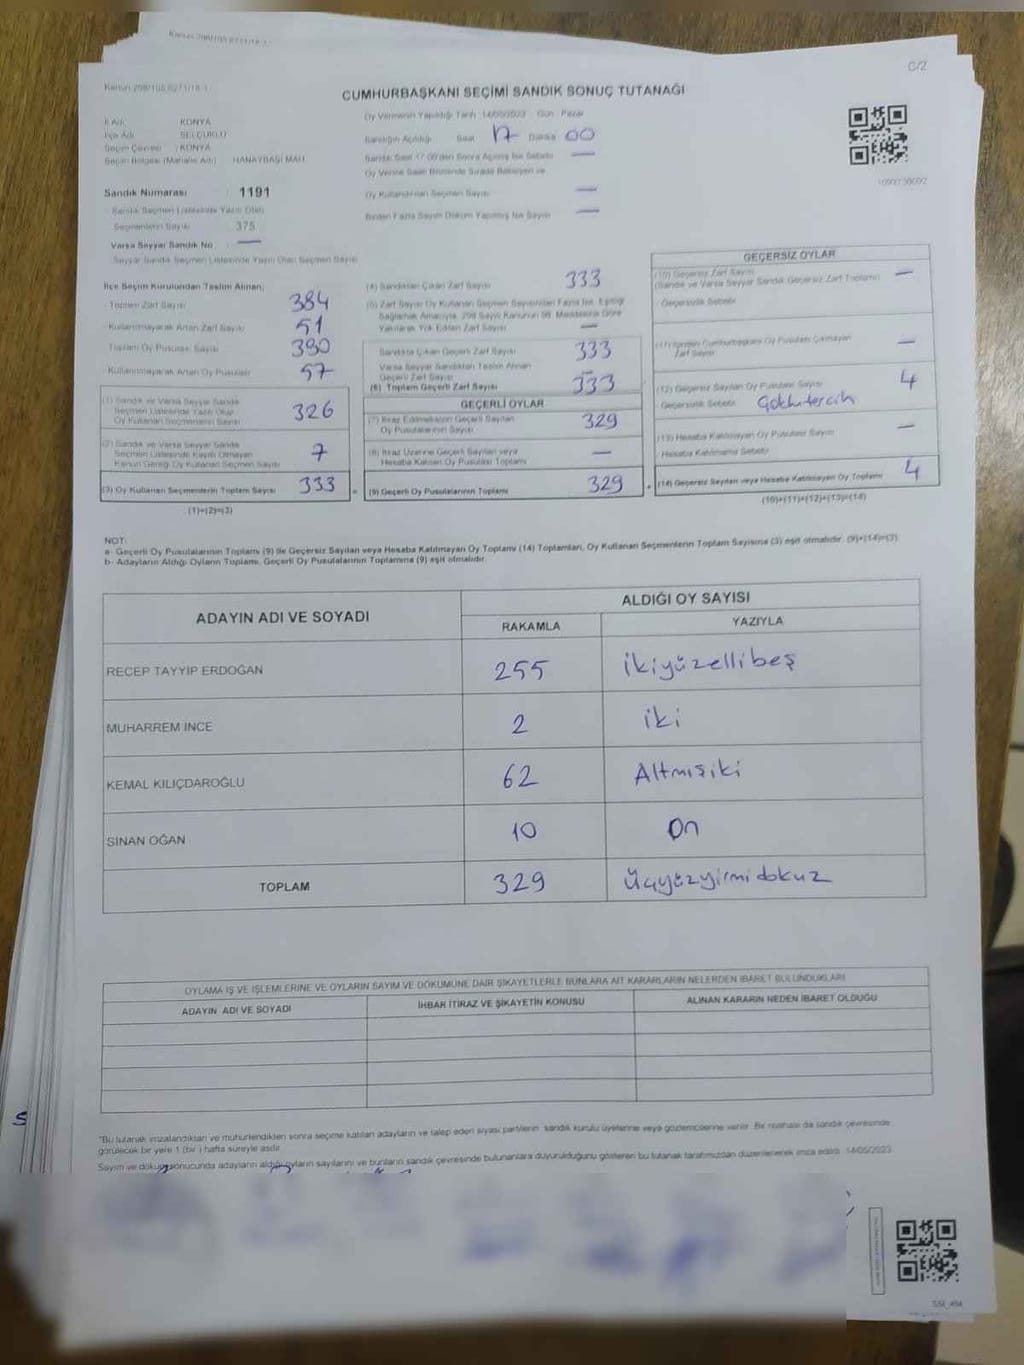 C/2
CUMHURBAŞKANI SEÇİMİ SANDIK SONUÇ TUTANAĞI
İl Adı : KONYA
İlçe Adı : SELÇUKLU
Seçim Çevresi : KONYA
Seçim Bölgesi (Mahalle Adı) : HANAYBAŞI MAH.
Sandık Numarası : 1191
Sandık Seçmen Listesinde Yazılı Olan
Seçmenlerin Sayısı : 375
Varsa Seyyar Sandık No : —
Seyyar Sandık Seçmen Listesinde Yazılı Olan Seçmen Sayısı
Oy Vermenin Yapıldığı Tarih : 14/05/2023 Gün : Pazar
Sandığın Açıldığı Saat 17 Dakika 00
Sandık Saat 17.00'den Sonra Açılmış İse Sebebi —
Oy Verme Saati Bitiminde Sırada Bekleyen ve
Oy Kullandırılan Seçmen Sayısı —
Birden Fazla Sayım Döküm Yapılmış İse Sayısı —
İlçe Seçim Kurulundan Teslim Alınan;
Toplam Zarf Sayısı 384
Kullanılmayarak Artan Zarf Sayısı 51
Toplam Oy Pusulası Sayısı 390
Kullanılmayarak Artan Oy Pusulası 57
(1) Sandık ve Varsa Seyyar Sandık
Seçmen Listesinde Yazılı Olup
Oy Kullanan Seçmenlerin Sayısı 326
(2) Sandık ve Varsa Seyyar Sandık
Seçmen Listesinde Kayıtlı Olmayan
Kanun Gereği Oy Kullanan Seçmen Sayısı 7
(3) Oy Kullanan Seçmenlerin Toplam Sayısı 333
(1)+(2)=(3)
(4) Sandıktan Çıkan Zarf Sayısı 333
(5) Zarf Sayısı Oy Kullanan Seçmen Sayısından Fazla İse, Eşitliği
Sağlamak Amacıyla, 298 Sayılı Kanunun 98. Maddesine Göre
Yakılarak Yok Edilen Zarf Sayısı —
Sandıkta Çıkan Geçerli Zarf Sayısı 333
Varsa Seyyar Sandıktan Teslim Alınan
Geçerli Zarf Sayısı —
(6) Toplam Geçerli Zarf Sayısı 333
GEÇERLİ OYLAR
(7) İtiraz Edilmeksizin Geçerli Sayılan
Oy Pusulalarının Sayısı 329
(8) İtiraz Üzerine Geçerli Sayılan veya
Hesaba Katılan Oy Pusulası Toplamı —
(9) Geçerli Oy Pusulalarının Toplamı 329
GEÇERSİZ OYLAR
(10) Geçersiz Zarf Sayısı —
(Sandık ve Varsa Seyyar Sandık Geçersiz Zarf Toplamı)
Geçersizlik Sebebi
Zarf Sayısı —
(12) Geçersiz Sayılan Oy Pusulası Sayısı 4
Geçersizlik Sebebi
(13) Hesaba Katılmayan Oy Pusulası Sayısı —
Hesaba Katılmama Sebebi
(14) Geçersiz Sayılan veya Hesaba Katılmayan Oy Toplamı 4
NOT:
a- Geçerli Oy Pusulalarının Toplamı (9) ile Geçersiz Sayılan veya Hesaba Katılmayan Oy Toplamı (14) Toplamları, Oy Kullanan Seçmenlerin Toplam Sayısına (3) eşit olmalıdır. (9)+(14)=(3)
b- Adayların Aldığı Oyların Toplamı, Geçerli Oy Pusulalarının Toplamına (9) eşit olmalıdır.
ADAYIN ADI VE SOYADI ALDIĞI OY SAYISI
RAKAMLA YAZIYLA
RECEP TAYYİP ERDOĞAN 255 ikiyüzellibeş
MUHARREM İNCE 2 iki
KEMAL KILIÇDAROĞLU 62 Altmışiki
SİNAN OĞAN 10 On
TOPLAM 329 Üçyüzyirmidokuz
OYLAMA İŞ VE İŞLEMLERİNE VE OYLARIN SAYIM VE DÖKÜMÜNE DAİR ŞİKAYETLERLE BUNLARA AİT KARARLARIN NELERDEN İBARET BULUNDUKLARI
ADAYIN ADI VE SOYADI İHBAR İTİRAZ VE ŞİKAYETİN KONUSU ALINAN KARARIN NEDEN İBARET OLDUĞU
"Bu tutanak imzalandıktan ve mühürlendikten sonra seçime katılan adayların ve talep eden siyasi partilerin sandık kurulu üyelerine veya gözlemcilerine verilir. Bir nüshası da sandık çevresinde
görülecek bir yere 1 (bir) hafta süreyle asılır.
Sayım ve döküm sonucunda adayların aldığı oyların sayılarını ve bunların sandık çevresinde bulunanlara duyurulduğunu gösteren bu tutanak tarafımızdan düzenlenerek imza edildi. 14/05/2023